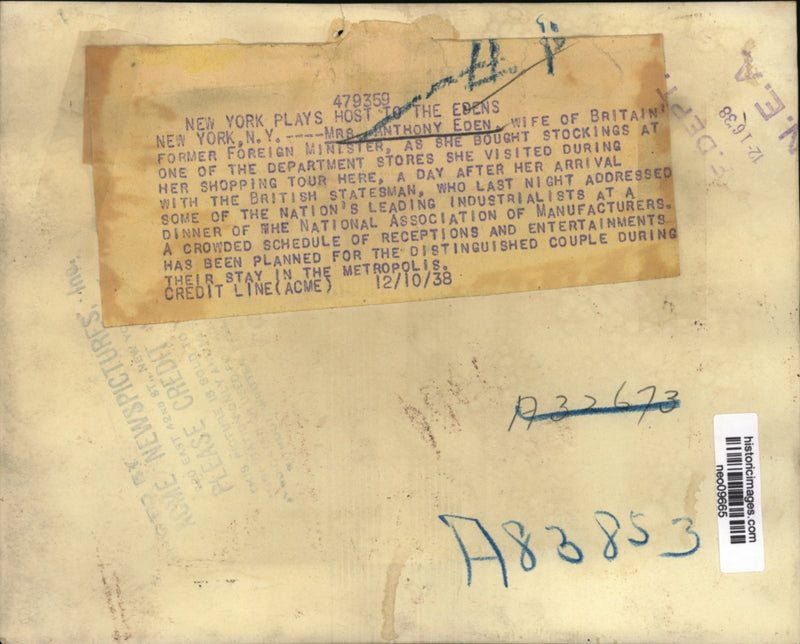 479359
NEW YORK PLAYS HOST TO THE EDENS
NEW YORK, N.Y. ----MRS. ANTHONY EDEN, WIFE OF BRITAIN'
FORMER FOREIGN MINISTER, AS SHE BOUGHT STOCKINGS AT
ONE OF THE DEPARTMENT STORES SHE VISITED DURING
HER SHOPPING TOUR HERE, A DAY AFTER HER ARRIVAL
WITH THE BRITISH STATESMAN, WHO LAST NIGHT ADDRESSED
SOME OF THE NATION'S LEADING INDUSTRIALISTS AT A
DINNER OF THE NATIONAL ASSOCIATION OF MANUFACTURERS.
A CROWDED SCHEDULE OF RECEPTIONS AND ENTERTAINMENTS
HAS BEEN PLANNED FOR THE DISTINGUISHED COUPLE DURING
THEIR STAY IN THE METROPOLIS.
CREDIT LINE(ACME) 12/10/38
N.E.A.
12-16-38
DEPT.
ACME NEWSPICTURES, Inc.
220 EAST 42ND ST. NEW Y
PLEASE CREDIT
A32673
A83853
historicimages.com
neo09665